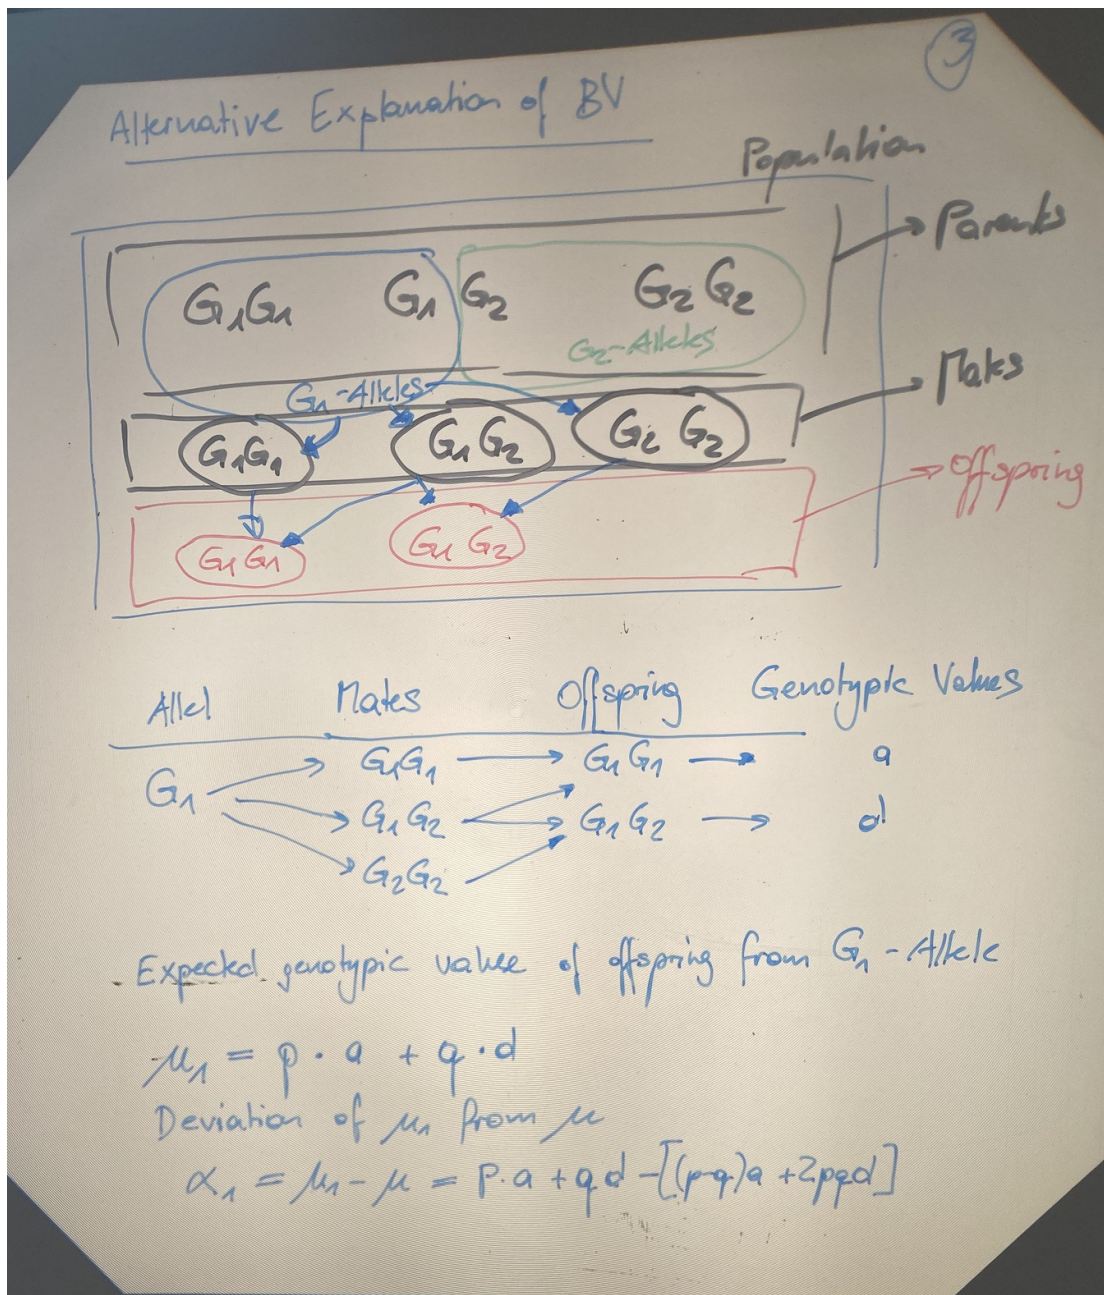 3
Alternative Explanation of BV
Population
Parents
G₁G₁ G₁ G₂ G₂ G₂
G₂-Alleles
G₁-Alleles
Mates
G₁G₁ G₁ G₂ G₂ G₂
Offspring
G₁ G₁ G₁ G₂
Allel Mates Offspring Genotypic Values
G₁G₁ G₁ G₁ a
G₁
G₁ G₂ G₁ G₂ d
G₂G₂
Expected genotypic value of offspring from G₁-Allele
μ₁ = p · a + q · d
Deviation of μ₁ from μ
α₁ = μ₁ - μ = p.a + qd - [(p-q)a + 2pqd]